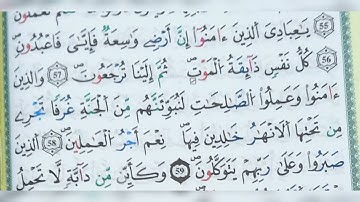 يَٰعِبَادِىَ ٱلَّذِينَ ءَامَنُوٓا۟ إِنَّ أَرْضِى وَٰسِعَةٌ فَإِيَّٰىَ فَٱعْبُدُونِ ٥٥
كُلُّ نَفْسٍ ذَآئِقَةُ ٱلْمَوْتِ ثُمَّ إِلَيْنَا تُرْجَعُونَ ٥٧ وَٱلَّذِينَ ٥٦
ءَامَنُوا۟ وَعَمِلُوا۟ ٱلصَّٰلِحَٰتِ لَنُبَوِّئَنَّهُم مِّنَ ٱلْجَنَّةِ غُرَفًا تَجْرِى
مِن تَحْتِهَا ٱلْأَنْهَٰرُ خَٰلِدِينَ فِيهَا نِعْمَ أَجْرُ ٱلْعَٰمِلِينَ ٥٨ ٱلَّذِينَ
صَبَرُوا۟ وَعَلَىٰ رَبِّهِمْ يَتَوَكَّلُونَ ٥٩ وَكَأَيِّن مِّن دَآبَّةٍ لَّا تَحْمِلُ